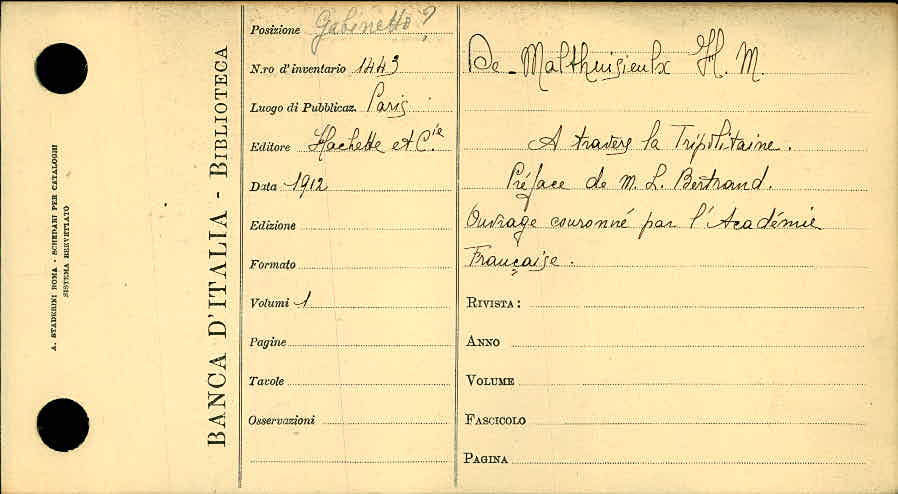 A. STADERINI ROMA - SCHEDARI PER CATALOGHI
SISTEMA BREVETTATO
BANCA D'ITALIA - BIBLIOTECA
Posizione Gabinetto?
N.ro d'inventario 1443
Luogo di Pubblicaz. Paris
Editore Hachette et C.ie
Data 1912
Edizione
Formato
Volumi 1
Pagine
Tavole
Osservazioni
De-Malthuisieulx H. M.
A travers la Tripolitaine.
Préface de M. L. Bertrand.
Ouvrage couronné par l'Académie
Française.
RIVISTA:
ANNO
VOLUME
FASCICOLO
PAGINA